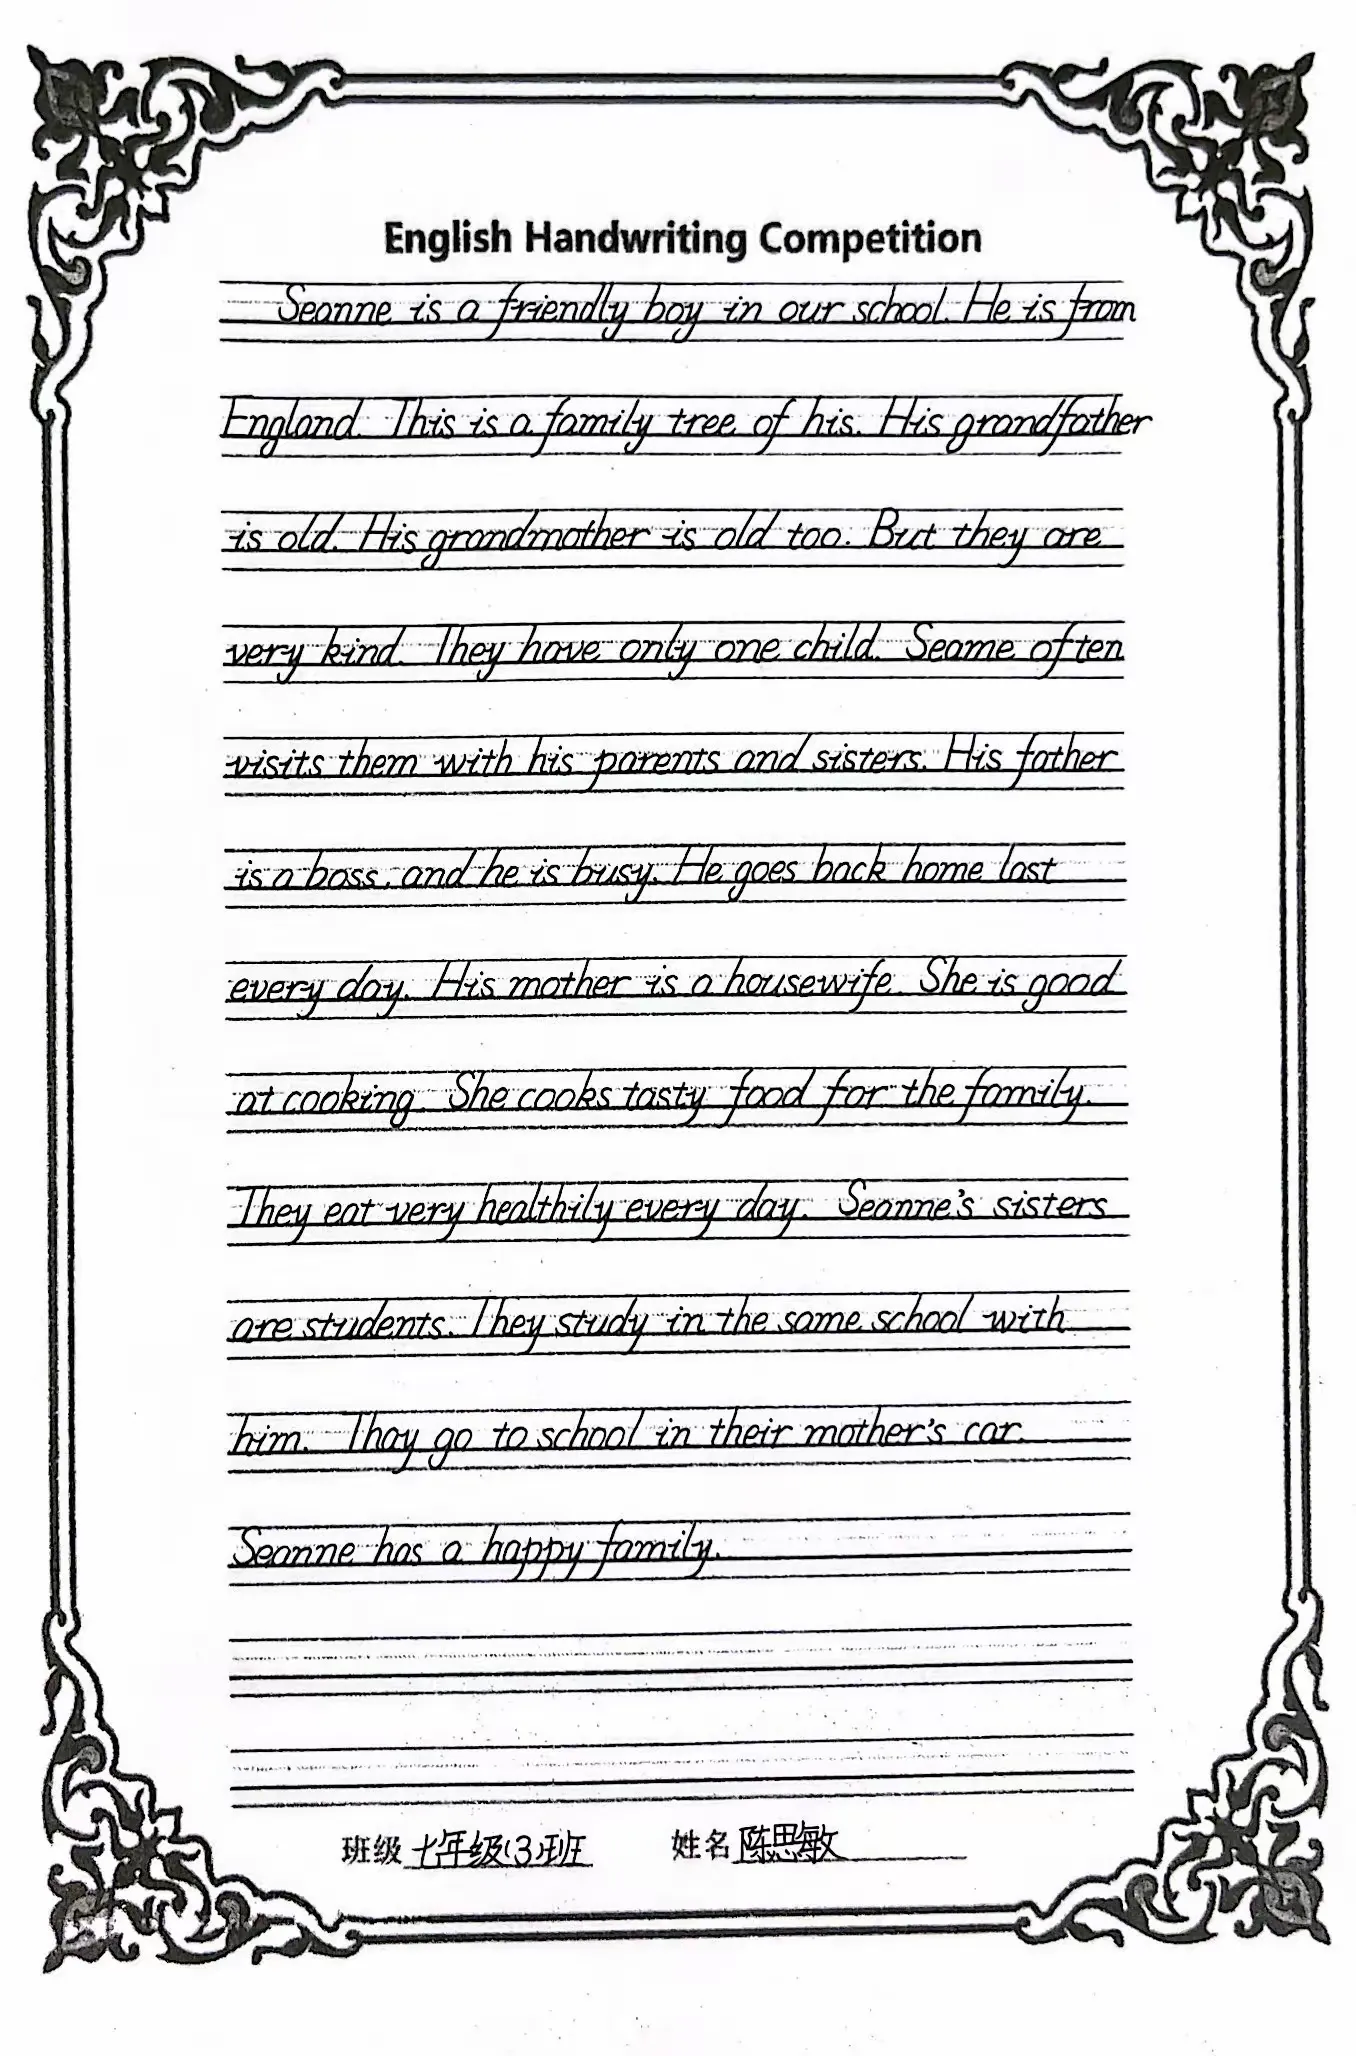 English Handwriting Competition
Seanne is a friendly boy in our school. He is from
England. This is a family tree of his. His grandfather
is old. His grandmother is old too. But they are
very kind. They have only one child. Seame often
visits them with his parents and sisters. His father
is a boss, and he is busy. He goes back home last
every day. His mother is a housewife. She is good
at cooking. She cooks tasty food for the family.
They eat very healthily every day. Seanne's sisters
are students. They study in the same school with
him. Thay go to school in their mother's car.
Seanne has a happy family.
班级 七年级(3)班 姓名 陈思敏